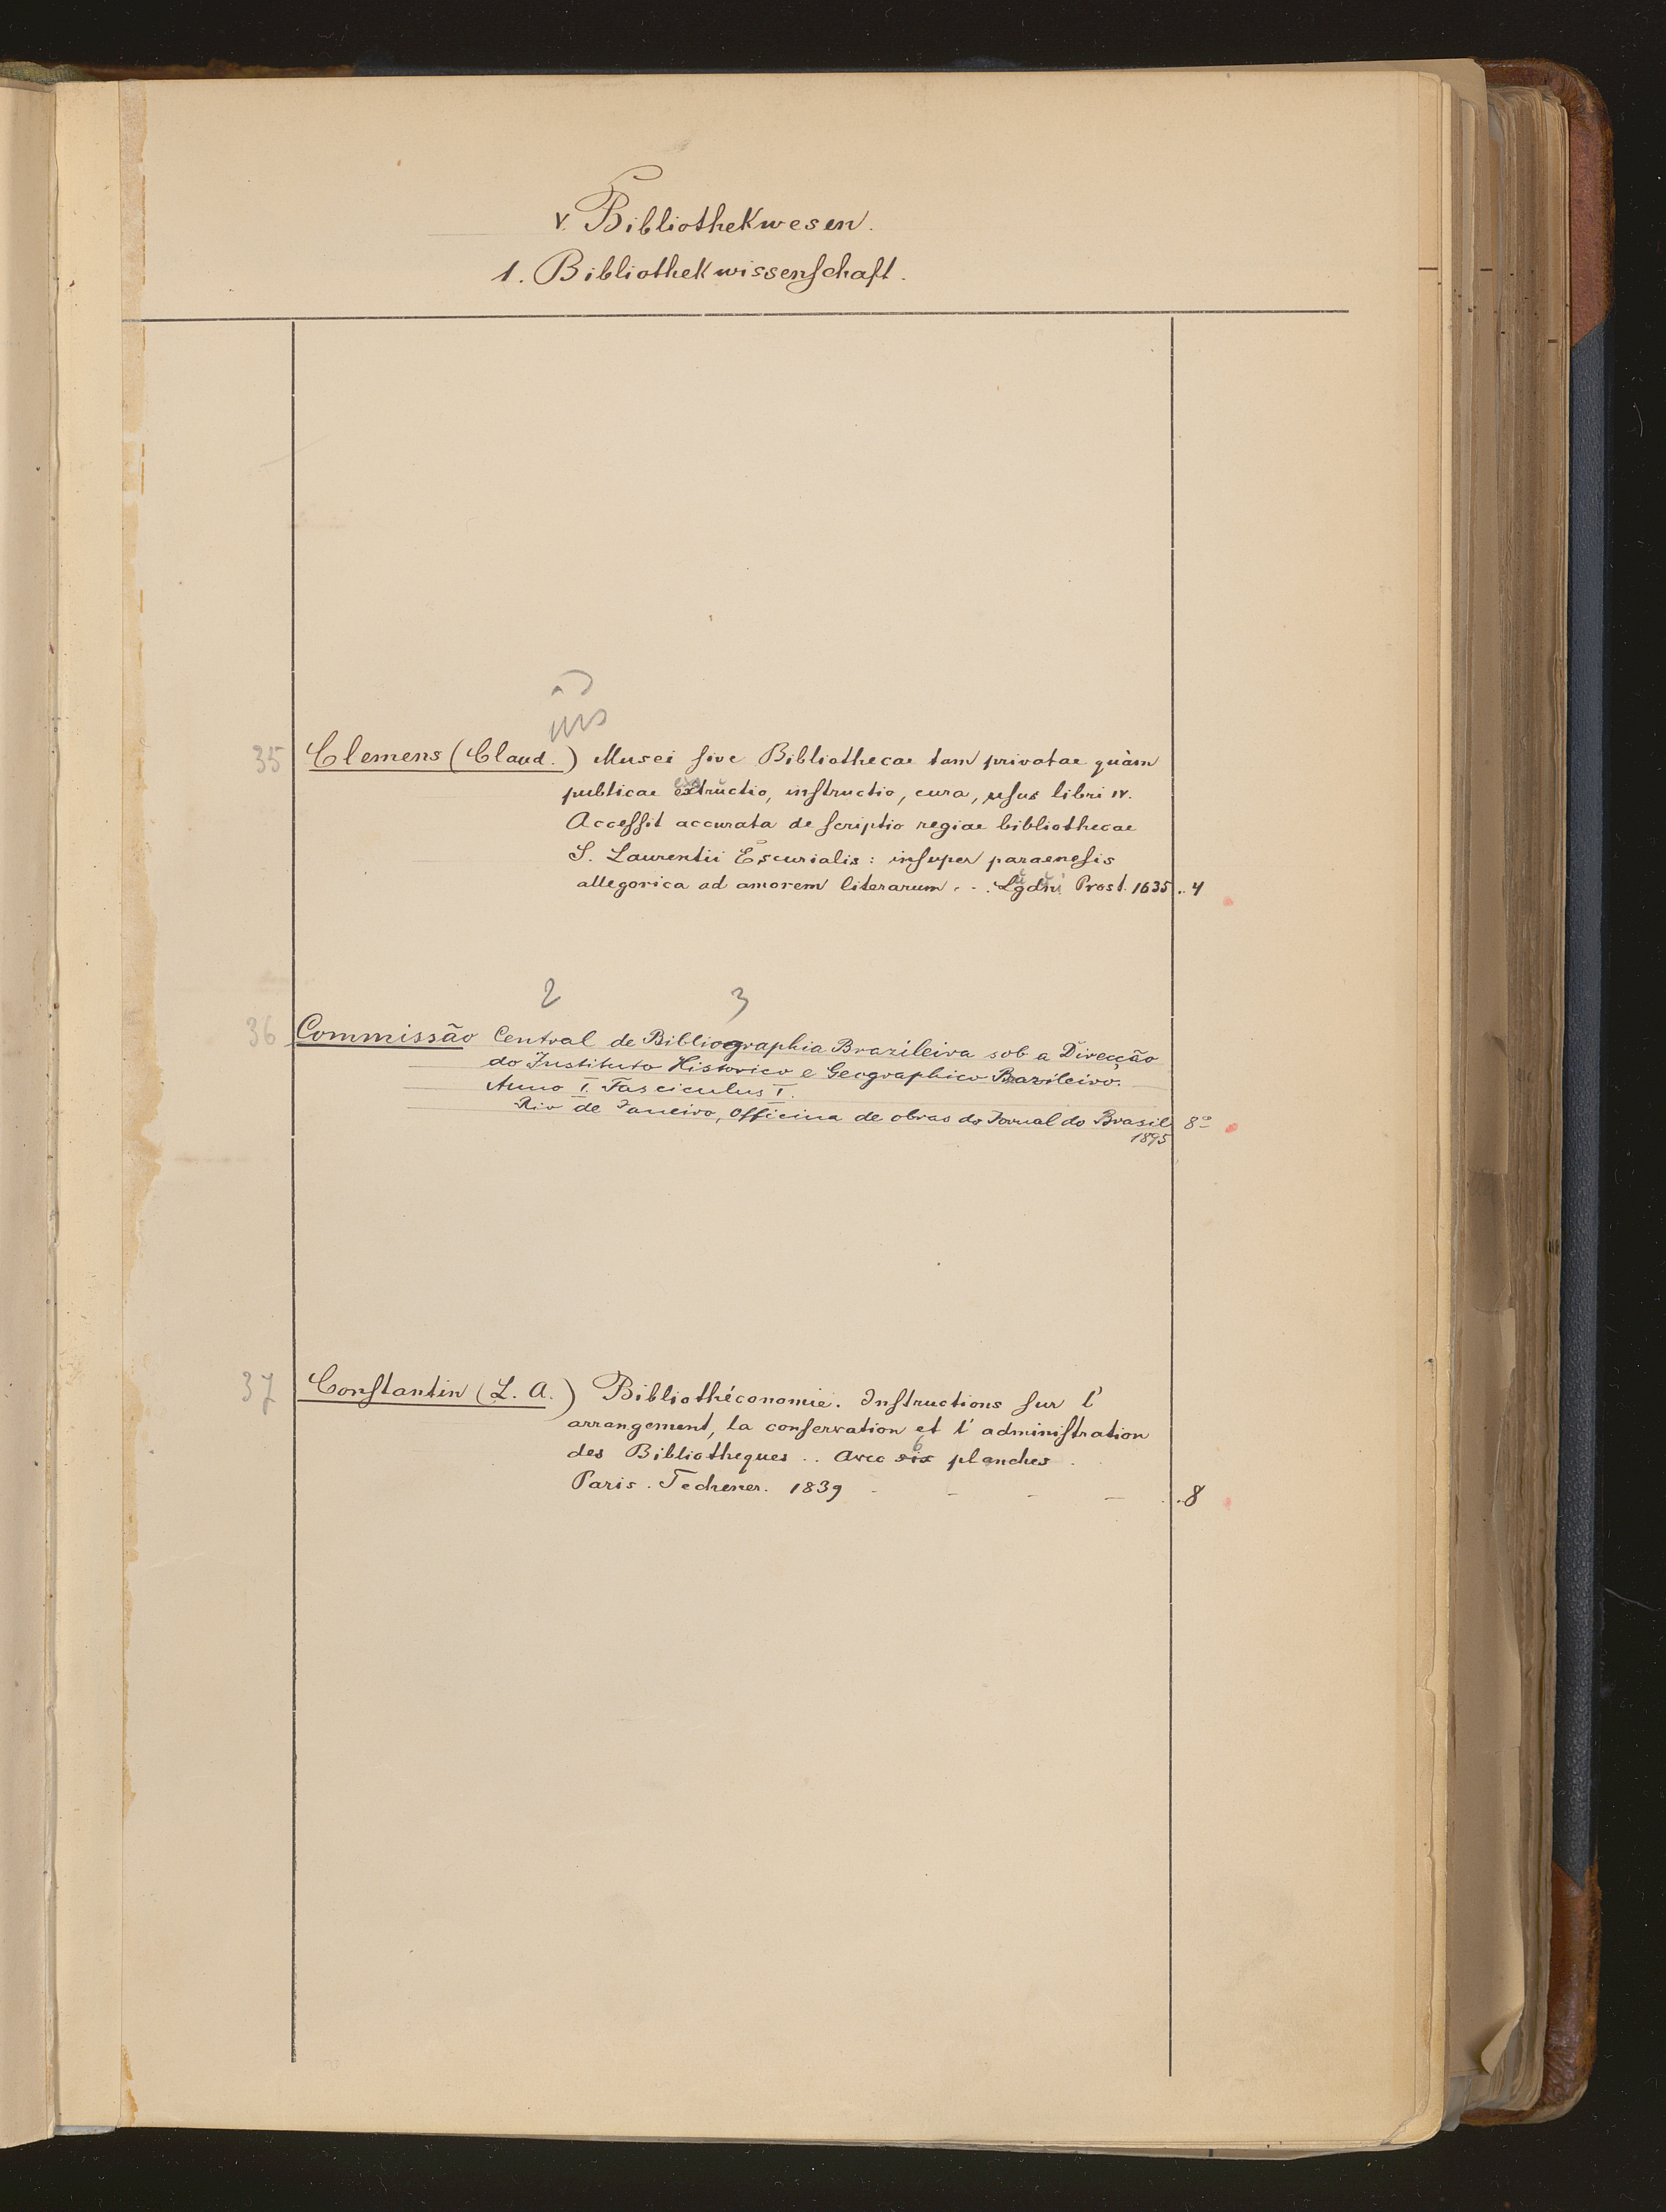 V. Bibliothekwesen.
1. Bibliothekwissenſchaft.
35 Clemens (Claud.) Musei ſive Bibliothecae tam privatae quàm
publicae extructio, inſtructio, cura, uſus libri IV.
Acceſſit accurata deſcriptio regiae bibliothecae
S. Laurentii Escurialis: inſuper paraeneſis
allegorica ad amorem literarum . . . Lgdni Prost. 1635 .. 4
2 3
36 Commissão Central de Bibliographia Brazileira sob a Direcção
do Instituto Historico e Geographico Brazileiro.
Anno I. Fasciculus I.
Rio de Janeiro, Officina de obras do Jornal do Brasil 8º
1895
37 Conſtantin (L. A.) Bibliothéconomie. Inſtructions ſur l'
arrangement, la conſervation et l'adminiſtration
des Bibliotheques .. Avec six 6 planches.
Paris. Techener. 1839 - - - - . 8